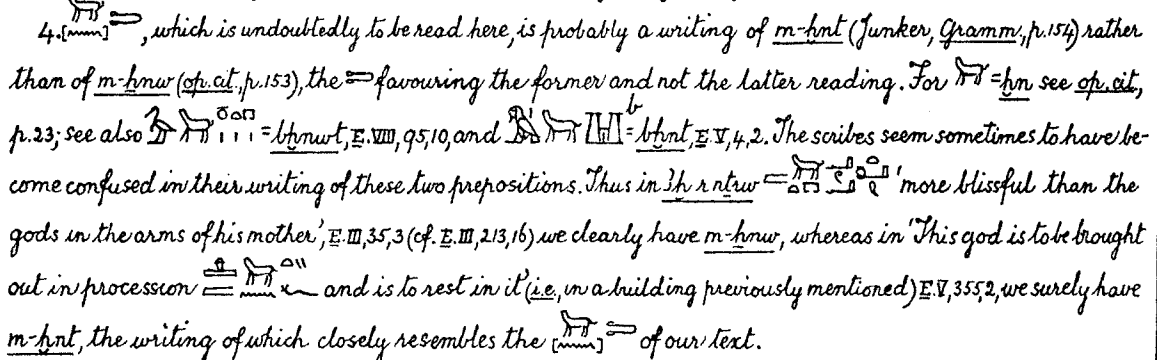 4. [ ] , which is undoubtedly to be read here, is probably a writing of m-ḫnt (Junker, Gramm., p.154) rather
than of m-ẖnw (op. cit., p.153), the favouring the former and not the latter reading. For =ḫn see op. cit.,
p.23; see also =bḫnwt, E. VIII, 95, 10, and =bḫnt, E. V, 4, 2. The scribes seem sometimes to have be-
come confused in their writing of these two prepositions. Thus in ꜣḫ r nṯrw 'more blissful than the
gods in the arms of his mother', E. III, 35, 3 (cf. E. III, 213, 16) we clearly have m-ẖnw, whereas in 'This god is to be brought
out in procession and is to rest in it' (i.e., in a building previously mentioned) E. V, 355, 2, we surely have
m-ḫnt, the writing of which closely resembles the [ ] of our text.